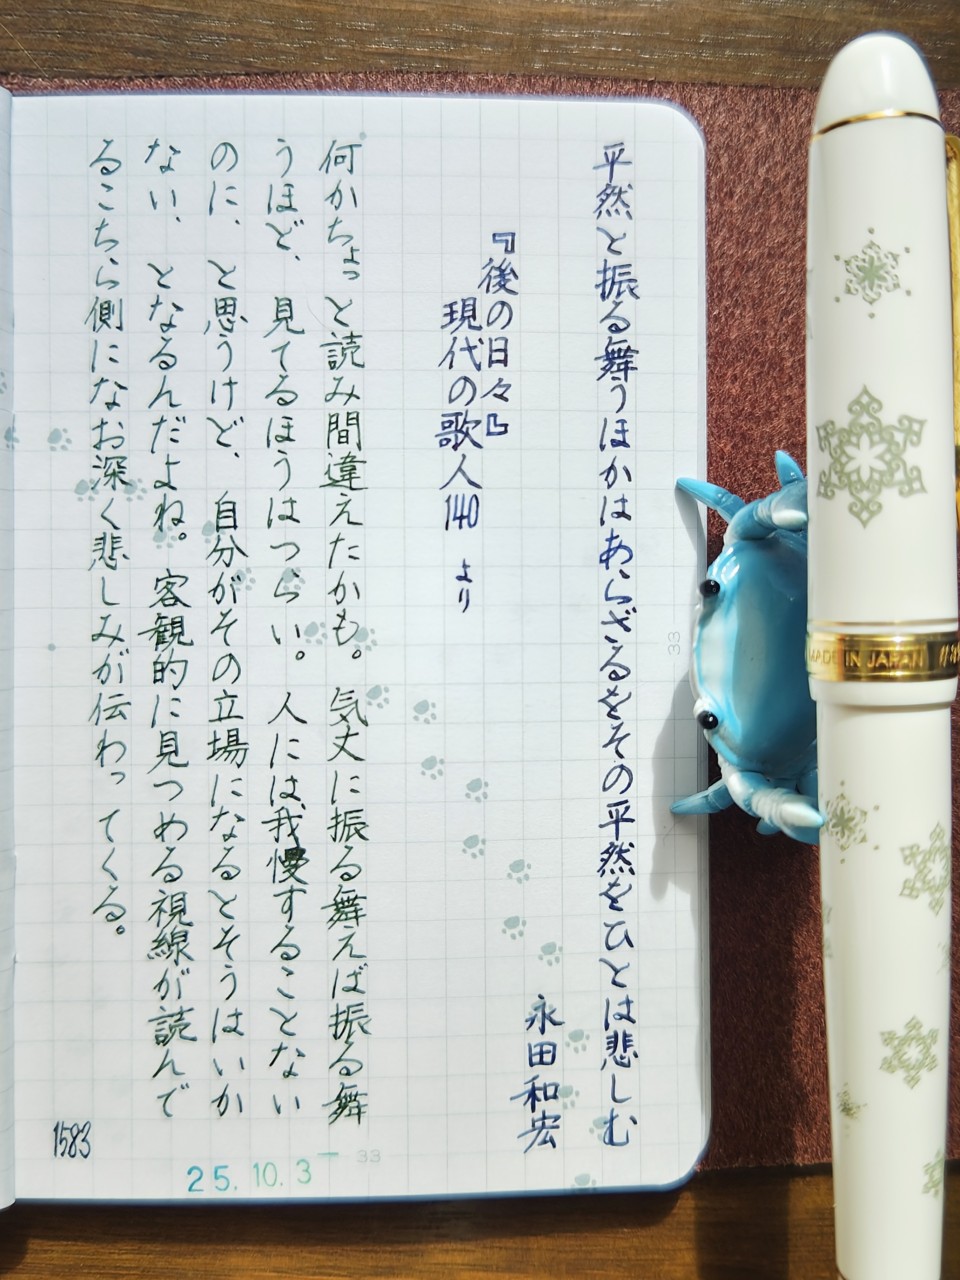 平然と振る舞うほかはあらざるをその平然をひとは悲しむ
永田和宏
『後の日々』
現代の歌人140 より
何かちょっと読み間違えたかも。気丈に振る舞えば振る舞
うほど、見てるほうはつらい。人には我慢することない
のに、と思うけど、自分がその立場になるとそうはいか
ない、となるんだよね。客観的に見つめる視線が読んで
るこちら側になお深く悲しみが伝わってくる。
1583
25.10.3
33
33
MADE IN JAPAN